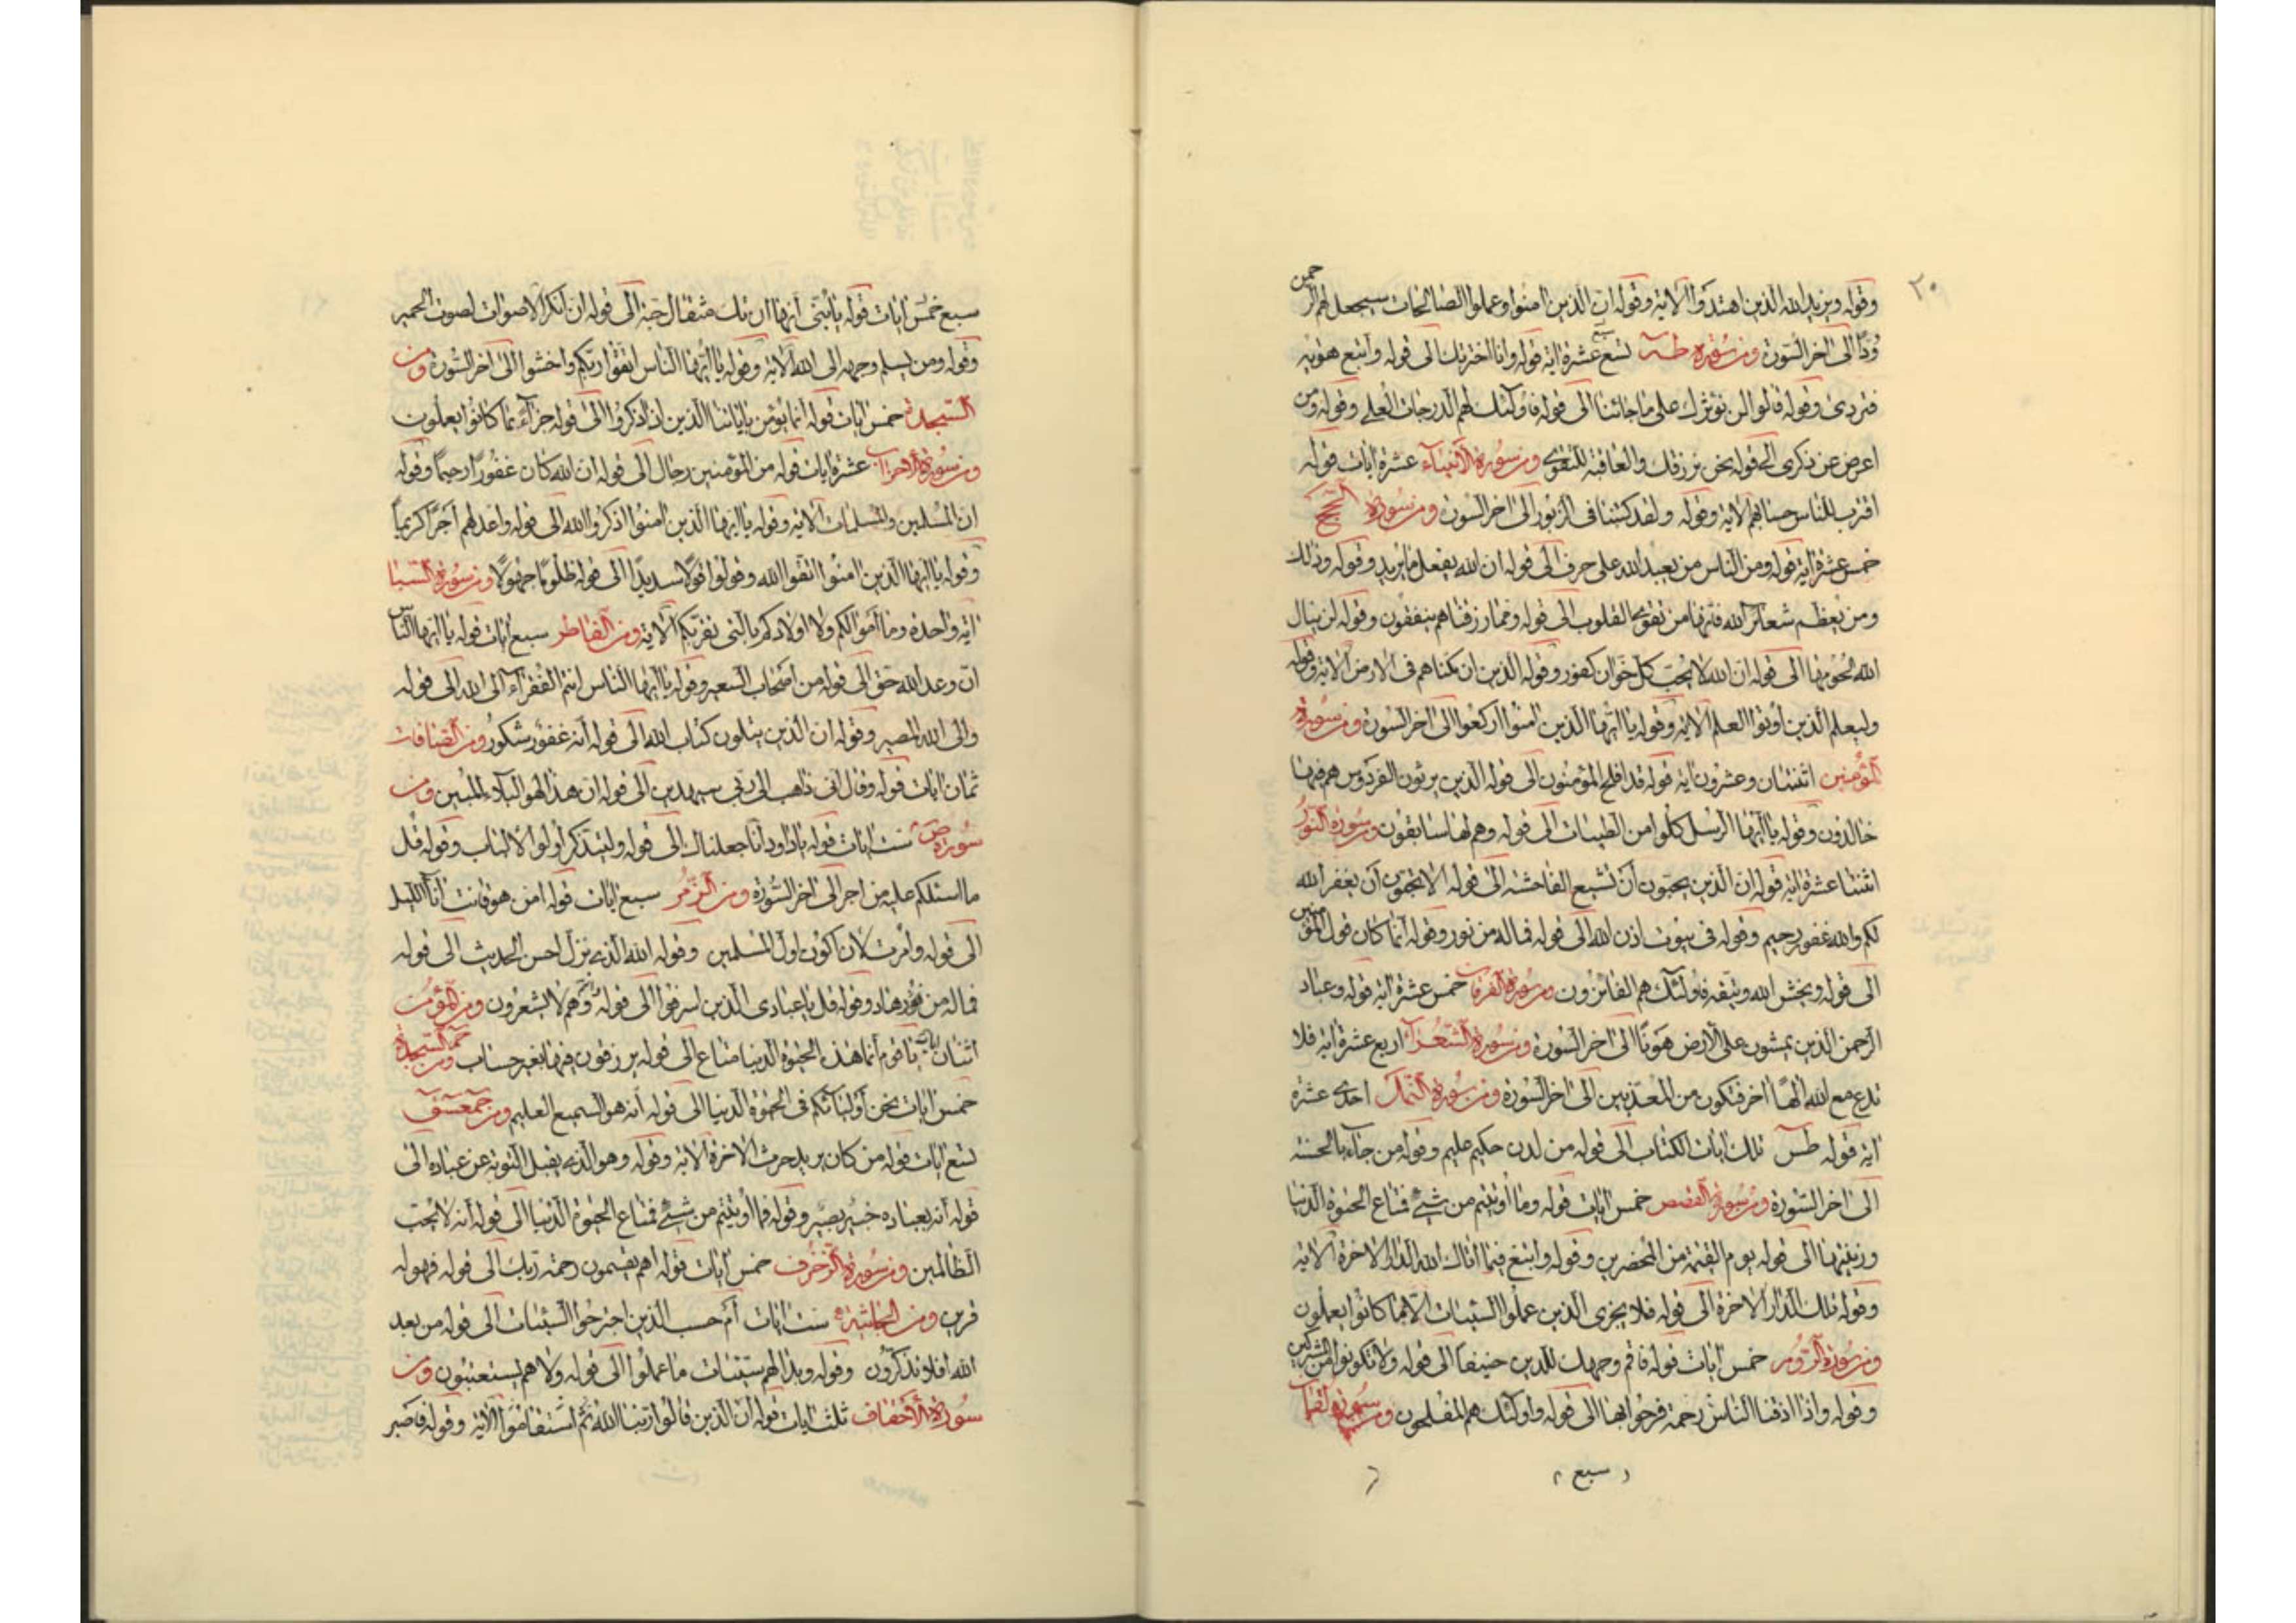 ٢٠
وقوله ويزيد الله الذين اهتدوا الاية وقوله ان الذين امنوا وعملوا الصالحات سيجعل لهم الرحمن
ودا الى اخر السورة ومن سورة طه تسع عشرة اية قوله وانا اخترتك الى قوله واتبع هويه
فتردى وقوله قالوا لن نوثرك على ما جائنا الى قوله فاولئك لهم الدرجات العلى وقوله ومن
اعرض عن ذكرى الى قوله نحن نرزقك والعاقبة للتقوى ومن سورة الانبياء عشرة ايات قوله
اقترب للناس حسابهم الاية وقوله ولقد كتبنا فى الزبور الى اخر السورة ومن سورة الحج
خمس عشرة اية قوله ومن الناس من يعبد الله على حرف الى قوله ان الله يفعل ما يريد وقوله وذلك
ومن يعظم شعائر الله فانها من تقوى القلوب الى قوله ومما رزقناهم ينفقون وقوله لن ينال
الله لحومها الى قوله ان الله لا يحب كل خوان كفور وقوله الذين ان مكناهم فى الارض الاية وقوله
وليعلم الذين اوتوا العلم الاية وقوله يا ايها الذين امنوا اركعوا الى اخر السورة ومن سورة
المؤمنين اثنتان وعشرون اية قوله قد افلح المؤمنون الى قوله الذين يرثون الفردوس هم فيها
خالدون وقوله يا ايها الرسل كلوا من الطيبات الى قوله وهم لها سابقون ومن سورة النور
اثنتا عشرة اية قوله ان الذين يحبون ان تشيع الفاحشة الى قوله الا تحبون ان يغفر الله
لكم والله غفور رحيم وقوله فى بيوت اذن الله الى قوله فما له من نور وقوله انما كان قول المؤمنين
الى قوله ويخش الله ويتقه فاولئك هم الفائزون ومن سورة الفرقان خمس عشرة اية قوله وعباد
الرحمن الذين يمشون على الارض هونا الى اخر السورة ومن سورة الشعراء اربع عشرة اية فلا
تدع مع الله الها اخر فتكون من المعذبين الى اخر السورة ومن سورة النمل احدى عشرة
اية قوله طس تلك ايات الكتاب الى قوله من لدن حكيم عليم وقوله من جاء بالحسنة
الى اخر السورة ومن سورة القصص خمس ايات قوله وما اوتيتم من شىء فمتاع الحيوة الدنيا
وزينتها الى قوله يوم القيمة من المحضرين وقوله وابتغ فيما اتاك الله الدار الاخرة الاية
وقوله تلك الدار الاخرة الى قوله فلا يجزى الذين عملوا السيئات الا ما كانوا يعملون
ومن سورة الروم خمس ايات قوله فاقم وجهك للدين حنيفا الى قوله ولا تكونوا من المشركين
وقوله واذا اذقنا الناس رحمة فرحوا بها الى قوله واولئك هم المفلحون ومن سورة لقمان
سبع
سبع خمس ايات قوله يا بنى انها ان تك مثقال حبة الى قوله ان انكر الاصوات لصوت الحمير
وقوله ومن يسلم وجهه الى الله الاية وقوله يا ايها الناس اتقوا ربكم واخشوا الى اخر السورة ومن
السجدة خمس ايات قوله انما يؤمن باياتنا الذين اذا ذكروا الى قوله جزاء بما كانوا يعملون
ومن سورة الاحزاب عشرة ايات قوله من المؤمنين رجال الى قوله ان الله كان غفورا رحيما وقوله
ان المسلمين والمسلمات الاية وقوله يا ايها الذين امنوا اذكروا الله الى قوله واعد لهم اجرا كريما
وقوله يا ايها الذين امنوا اتقوا الله وقولوا قولا سديدا الى قوله ظلوما جهولا ومن سورة السبا
اية واحدة وما اموالكم ولا اولادكم بالتى تقربكم الاية ومن الفاطر سبع ايات قوله يا ايها الناس
ان وعد الله حق الى قوله من اصحاب السعير وقوله يا ايها الناس انتم الفقراء الى الله الى قوله
والى الله المصير وقوله ان الذين يتلون كتاب الله الى قوله انه غفور شكور ومن الصافات
ثمان ايات قوله وقال انى ذاهب الى ربى سيهدين الى قوله ان هذا لهو البلاء المبين ومن
سورة ص ست ايات قوله يا داود انا جعلناك الى قوله وليتذكر اولوا الالباب وقوله قل
ما اسئلكم عليه من اجر الى اخر السورة ومن الزمر سبع ايات قوله امن هو قانت اناء الليل
الى قوله وامرت لان اكون اول المسلمين وقوله الله الذى نزل احسن الحديث الى قوله
فما له من هاد وقوله قل يا عبادى الذين اسرفوا الى قوله وانتم لا تشعرون ومن المؤمن
اثنتان يا قوم انما هذه الحيوة الدنيا متاع الى قوله يرزقون فيها بغير حساب ومن حم السجدة
خمس ايات نحن اولياؤكم فى الحيوة الدنيا الى قوله انه هو السميع العليم ومن حمعسق
تسع ايات قوله من كان يريد حرث الاخرة الاية وقوله وهو الذى يقبل التوبة عن عباده الى
قوله انه بعباده خبير بصير وقوله فما اوتيتم من شىء فمتاع الحيوة الدنيا الى قوله انه لا يحب
الظالمين ومن سورة الزخرف خمس ايات قوله اهم يقسمون رحمة ربك الى قوله فهو له
قرين ومن الجاثية ست ايات ام حسب الذين اجترحوا السيئات الى قوله من بعد
الله افلا تذكرون وقوله وبدا لهم سيئات ما عملوا الى قوله ولا هم يستعتبون ومن
سورة الاحقاف ثلث ايات قوله ان الذين قالوا ربنا الله ثم استقاموا الاية وقوله فاصبر